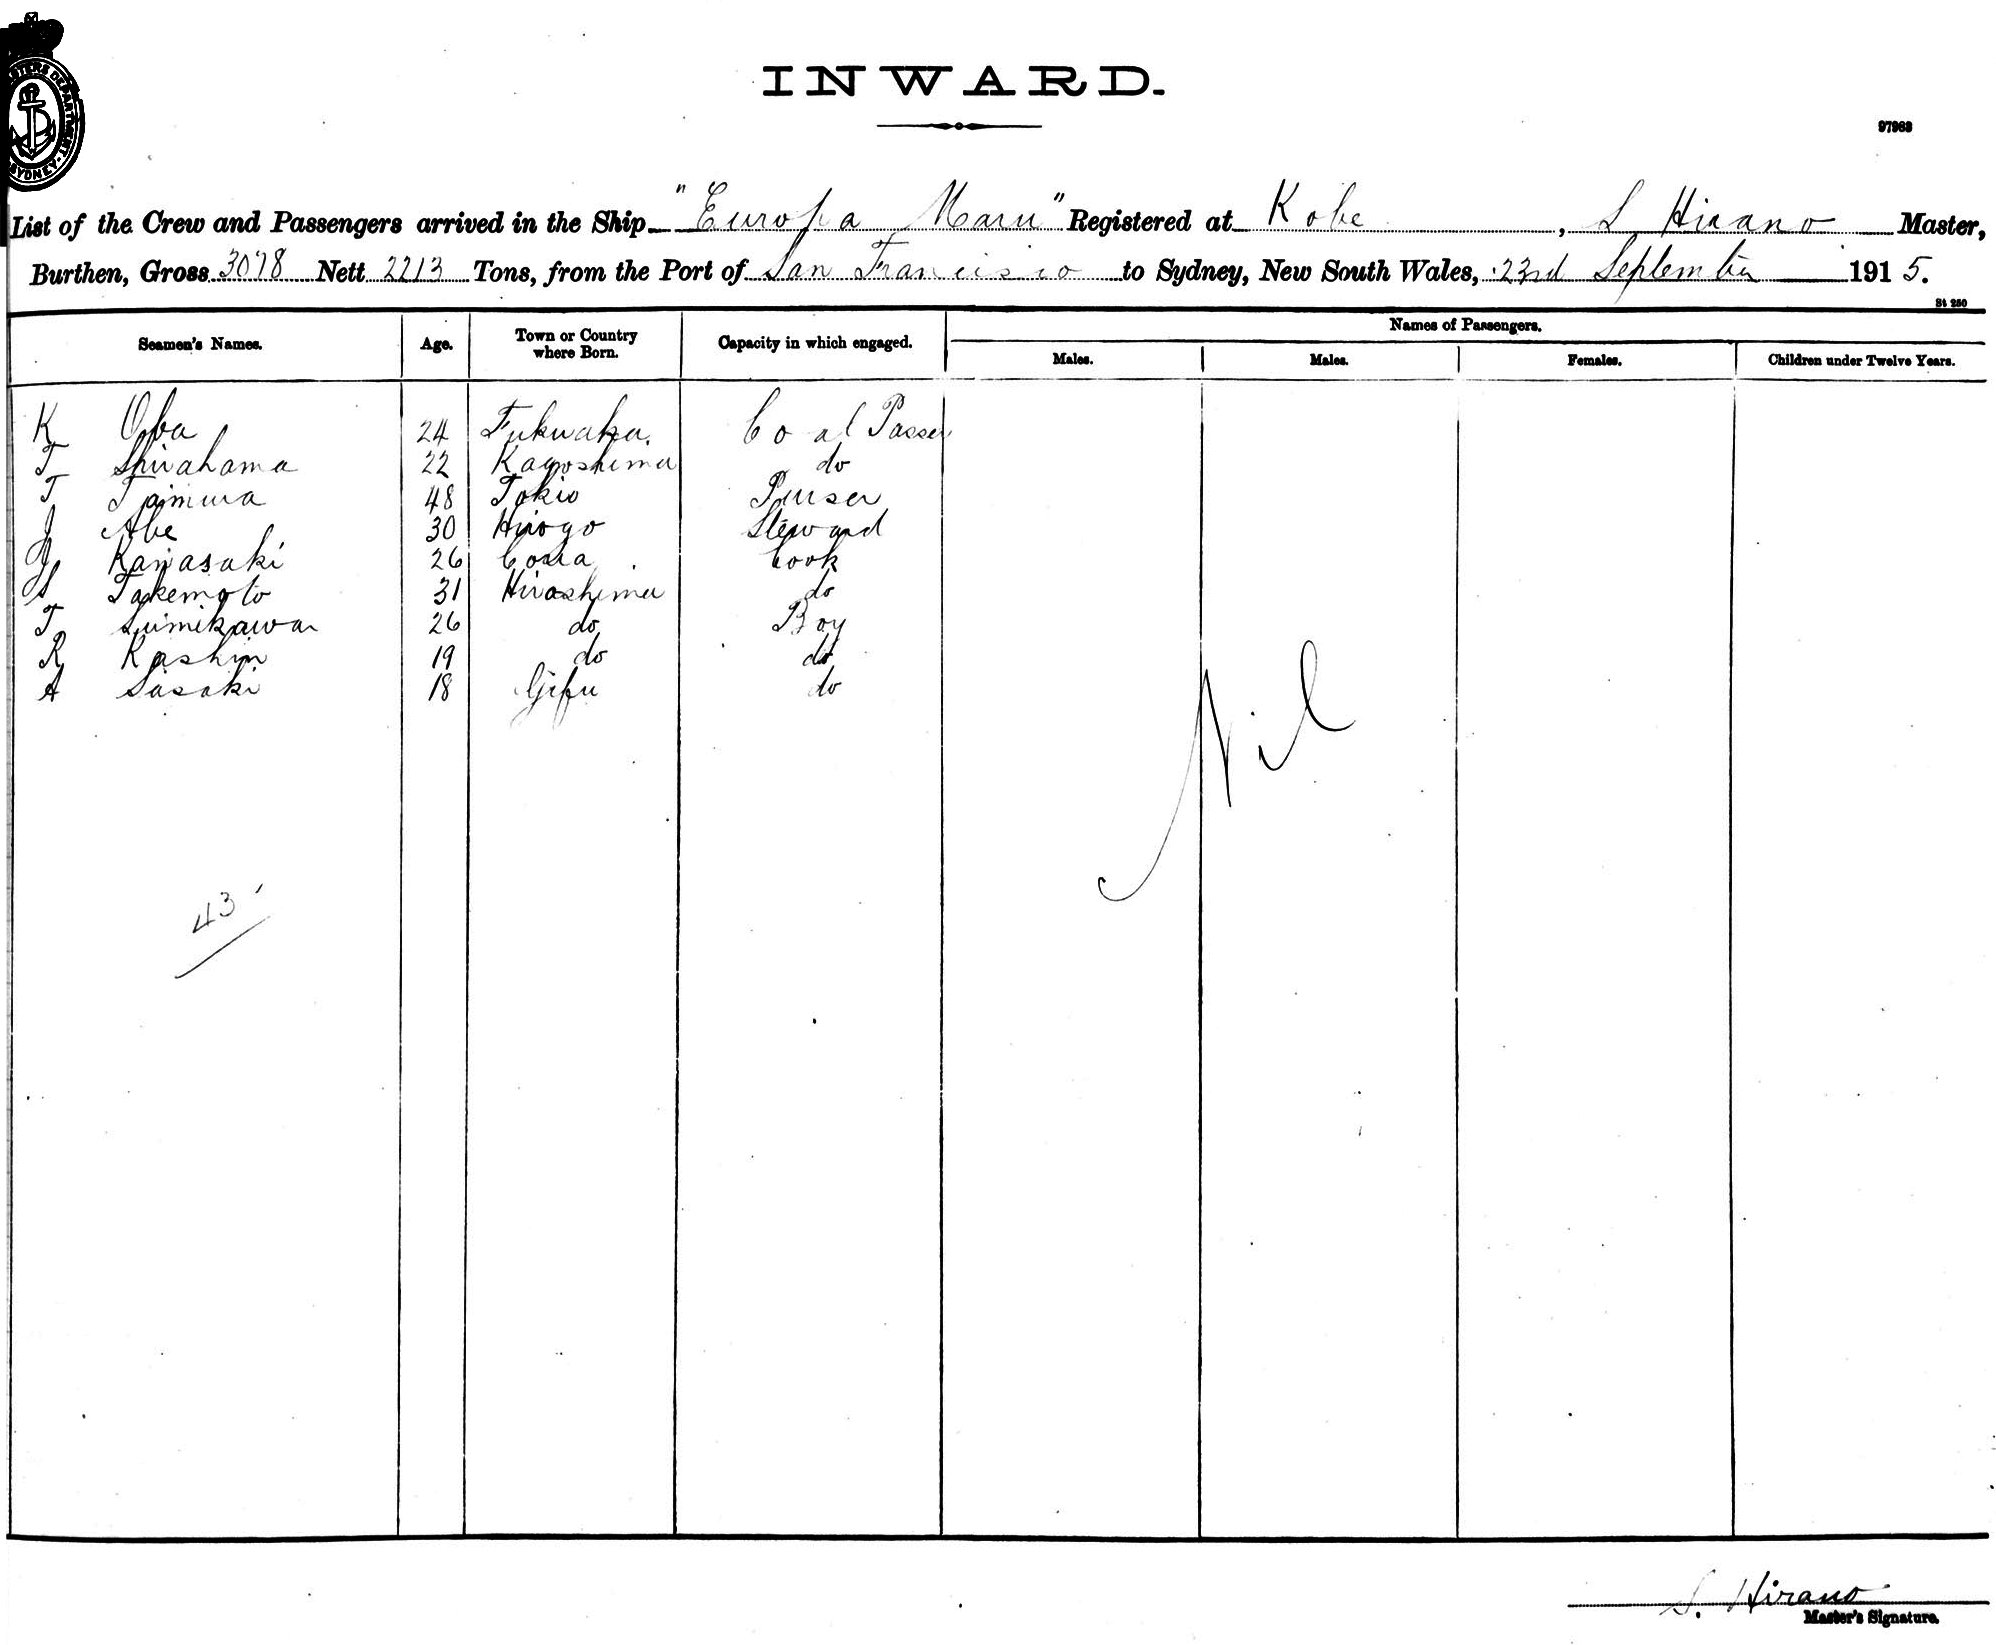 MASTERS DEPARTMENT · SYDNEY
INWARD.
97963
List of the Crew and Passengers arrived in the Ship "Europa Maru" Registered at Kobe, S Hirano Master,
Burthen, Gross 3078 Nett 2213 Tons, from the Port of San Francisco to Sydney, New South Wales, 23rd September 1915.
St 250
Seamen's Names. Age. Town or Country where Born. Capacity in which engaged. Names of Passengers.
Males. Males. Females. Children under Twelve Years.
K Oba 24 Fukuaka Coal Passer
T Shirahama 22 Kagoshima do
T Tajimura 48 Tokio Purser
J Abe 30 Hiogo Steward
Kawasaki 26 Cook
S Takemoto 31 Hiroshima do
T Suimikawa 26 do Boy
R Kashin 19 do do
A Sasaki 18 Gifu do
Nil
43
S. Hirano
Master's Signature.